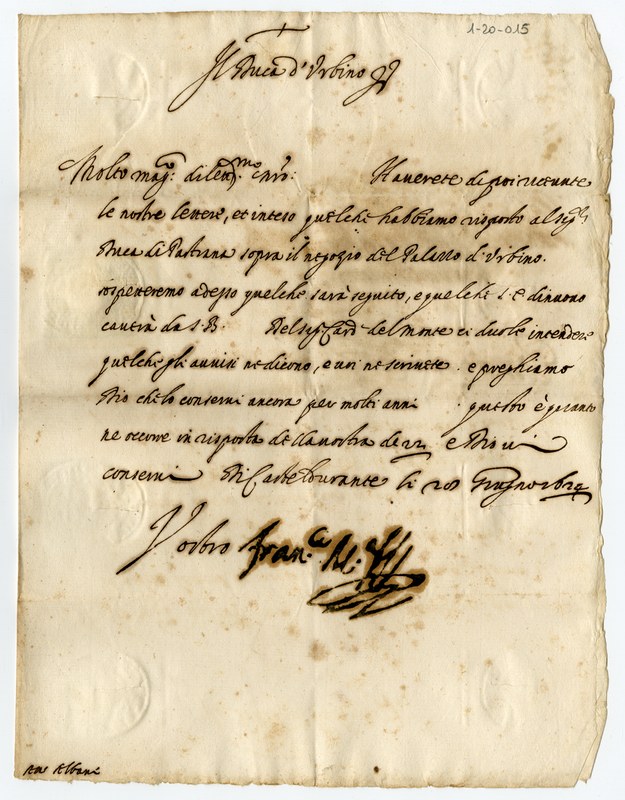 1-20-015
Il Duca d'Urbino
Molto mag.co dilett.mo nro: Haverete di poi ricevute
le nostre lettere, et inteso quelche habbiamo risposto al sig.r
Duca di Pastrana sopra il negozio del Palazzo d'Urbino.
aspetteremo adesso quelche sarà seguito, e quelche s'è di nuovo
da S.B. Del sig.r Card.le del Monte ci duole intendere
quelche gli avvisi ne dicono, e voi ne scrivete. e preghiamo
Dio che lo conservi ancora per molti anni. questo è quanto
ne occorre in risposta della vostra de 22 e Dio vi
conservi Di Casteldurante li 28 Giugno 1624
Vostro Fran.co M.a
Albani